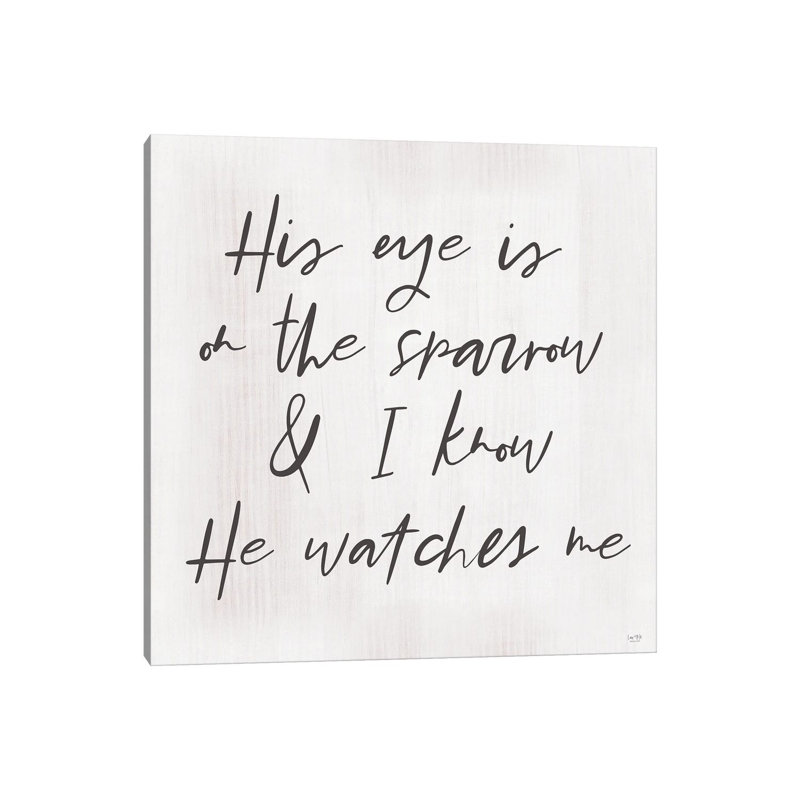 His eye is
on the sparrow
& I know
He watches me